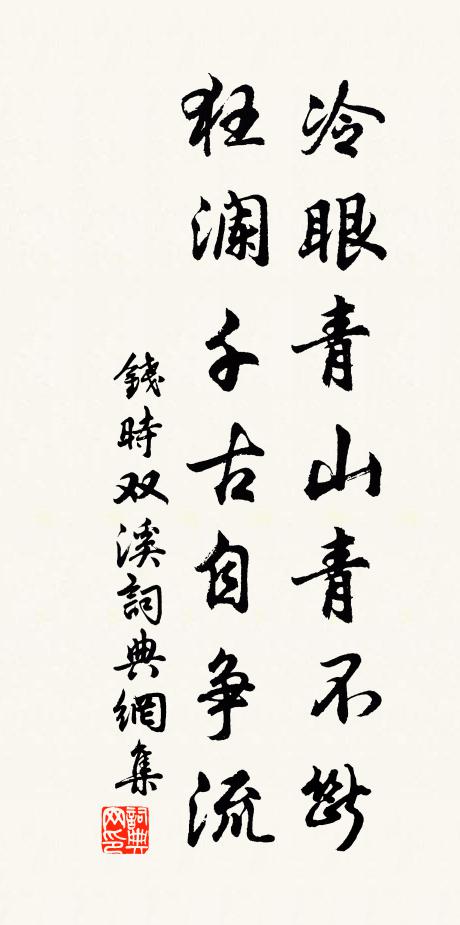 冷眼青山青不斷
狂瀾千古自争流
錢時双溪詞典網集
詞典网印